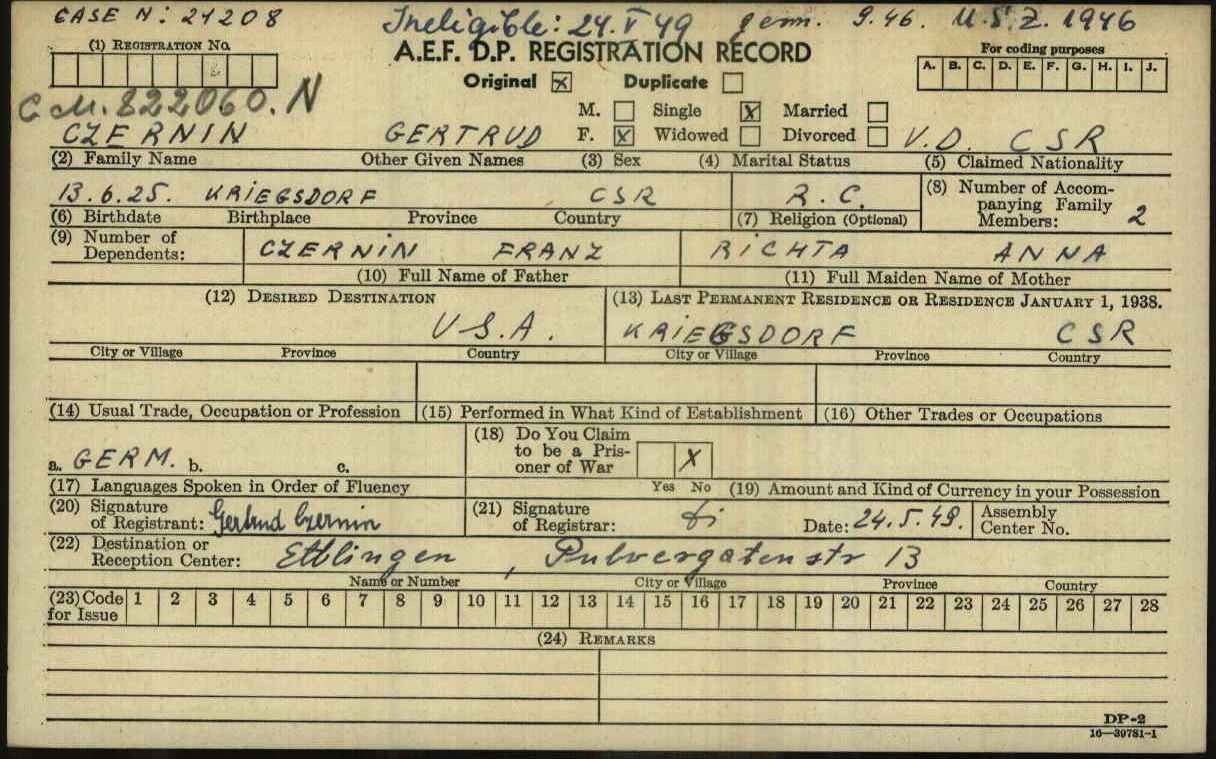 CASE N: 21208 Ineligible: 24. V 49 germ. 9.46. U.S.Z. 1946
(1) REGISTRATION No. A.E.F. D.P. REGISTRATION RECORD For coding purposes
Original X Duplicate A. B. C. D. E. F. G. H. I. J.
C.M. 822060. N
M. Single X Married
CZERNIN GERTRUD F. X Widowed Divorced V.D. CSR
(2) Family Name Other Given Names (3) Sex (4) Marital Status (5) Claimed Nationality
13.6.25. KRIEGSDORF CSR R.C. (8) Number of Accompanying Family Members: 2
(6) Birthdate Birthplace Province Country (7) Religion (Optional)
(9) Number of Dependents: CZERNIN FRANZ RICHTA ANNA
(10) Full Name of Father (11) Full Maiden Name of Mother
(12) DESIRED DESTINATION (13) LAST PERMANENT RESIDENCE OR RESIDENCE JANUARY 1, 1938.
U.S.A. KRIEGSDORF CSR
City or Village Province Country City or Village Province Country
(14) Usual Trade, Occupation or Profession (15) Performed in What Kind of Establishment (16) Other Trades or Occupations
(18) Do You Claim to be a Prisoner of War X
a. GERM. b. c.
Yes No
(17) Languages Spoken in Order of Fluency (19) Amount and Kind of Currency in your Possession
(20) Signature of Registrant: Gertrud Czernin (21) Signature of Registrar: Date: 24.5.49. Assembly Center No.
(22) Destination or Reception Center: Ettlingen, Pulvergatenstr 13
Name or Number City or Village Province Country
(23) Code for Issue 1 2 3 4 5 6 7 8 9 10 11 12 13 14 15 16 17 18 19 20 21 22 23 24 25 26 27 28
(24) REMARKS
DP-2
16—39781-1